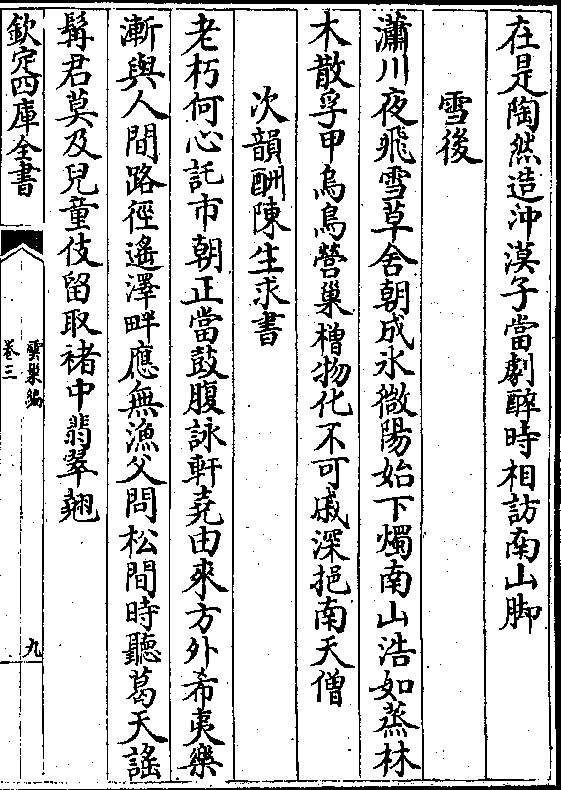 在是陶然造沖漠子當劇醉時相訪南山脚
雪後
瀟川夜飛雪草舍朝成氷微陽始下燭南山浩如蒸林
木散孚甲烏鳥營巢橧物化不可戚深挹南天僧
次韻酬陳生求書
老朽何心託市朝正當鼓腹詠軒堯由來方外希夷樂
漸與人間路徑遙澤畔應無漁父問松間時聽葛天謡
髯君莫及兒童伎留取褚中翡翠翹
欽定四庫全書
雲巢編
卷三
九